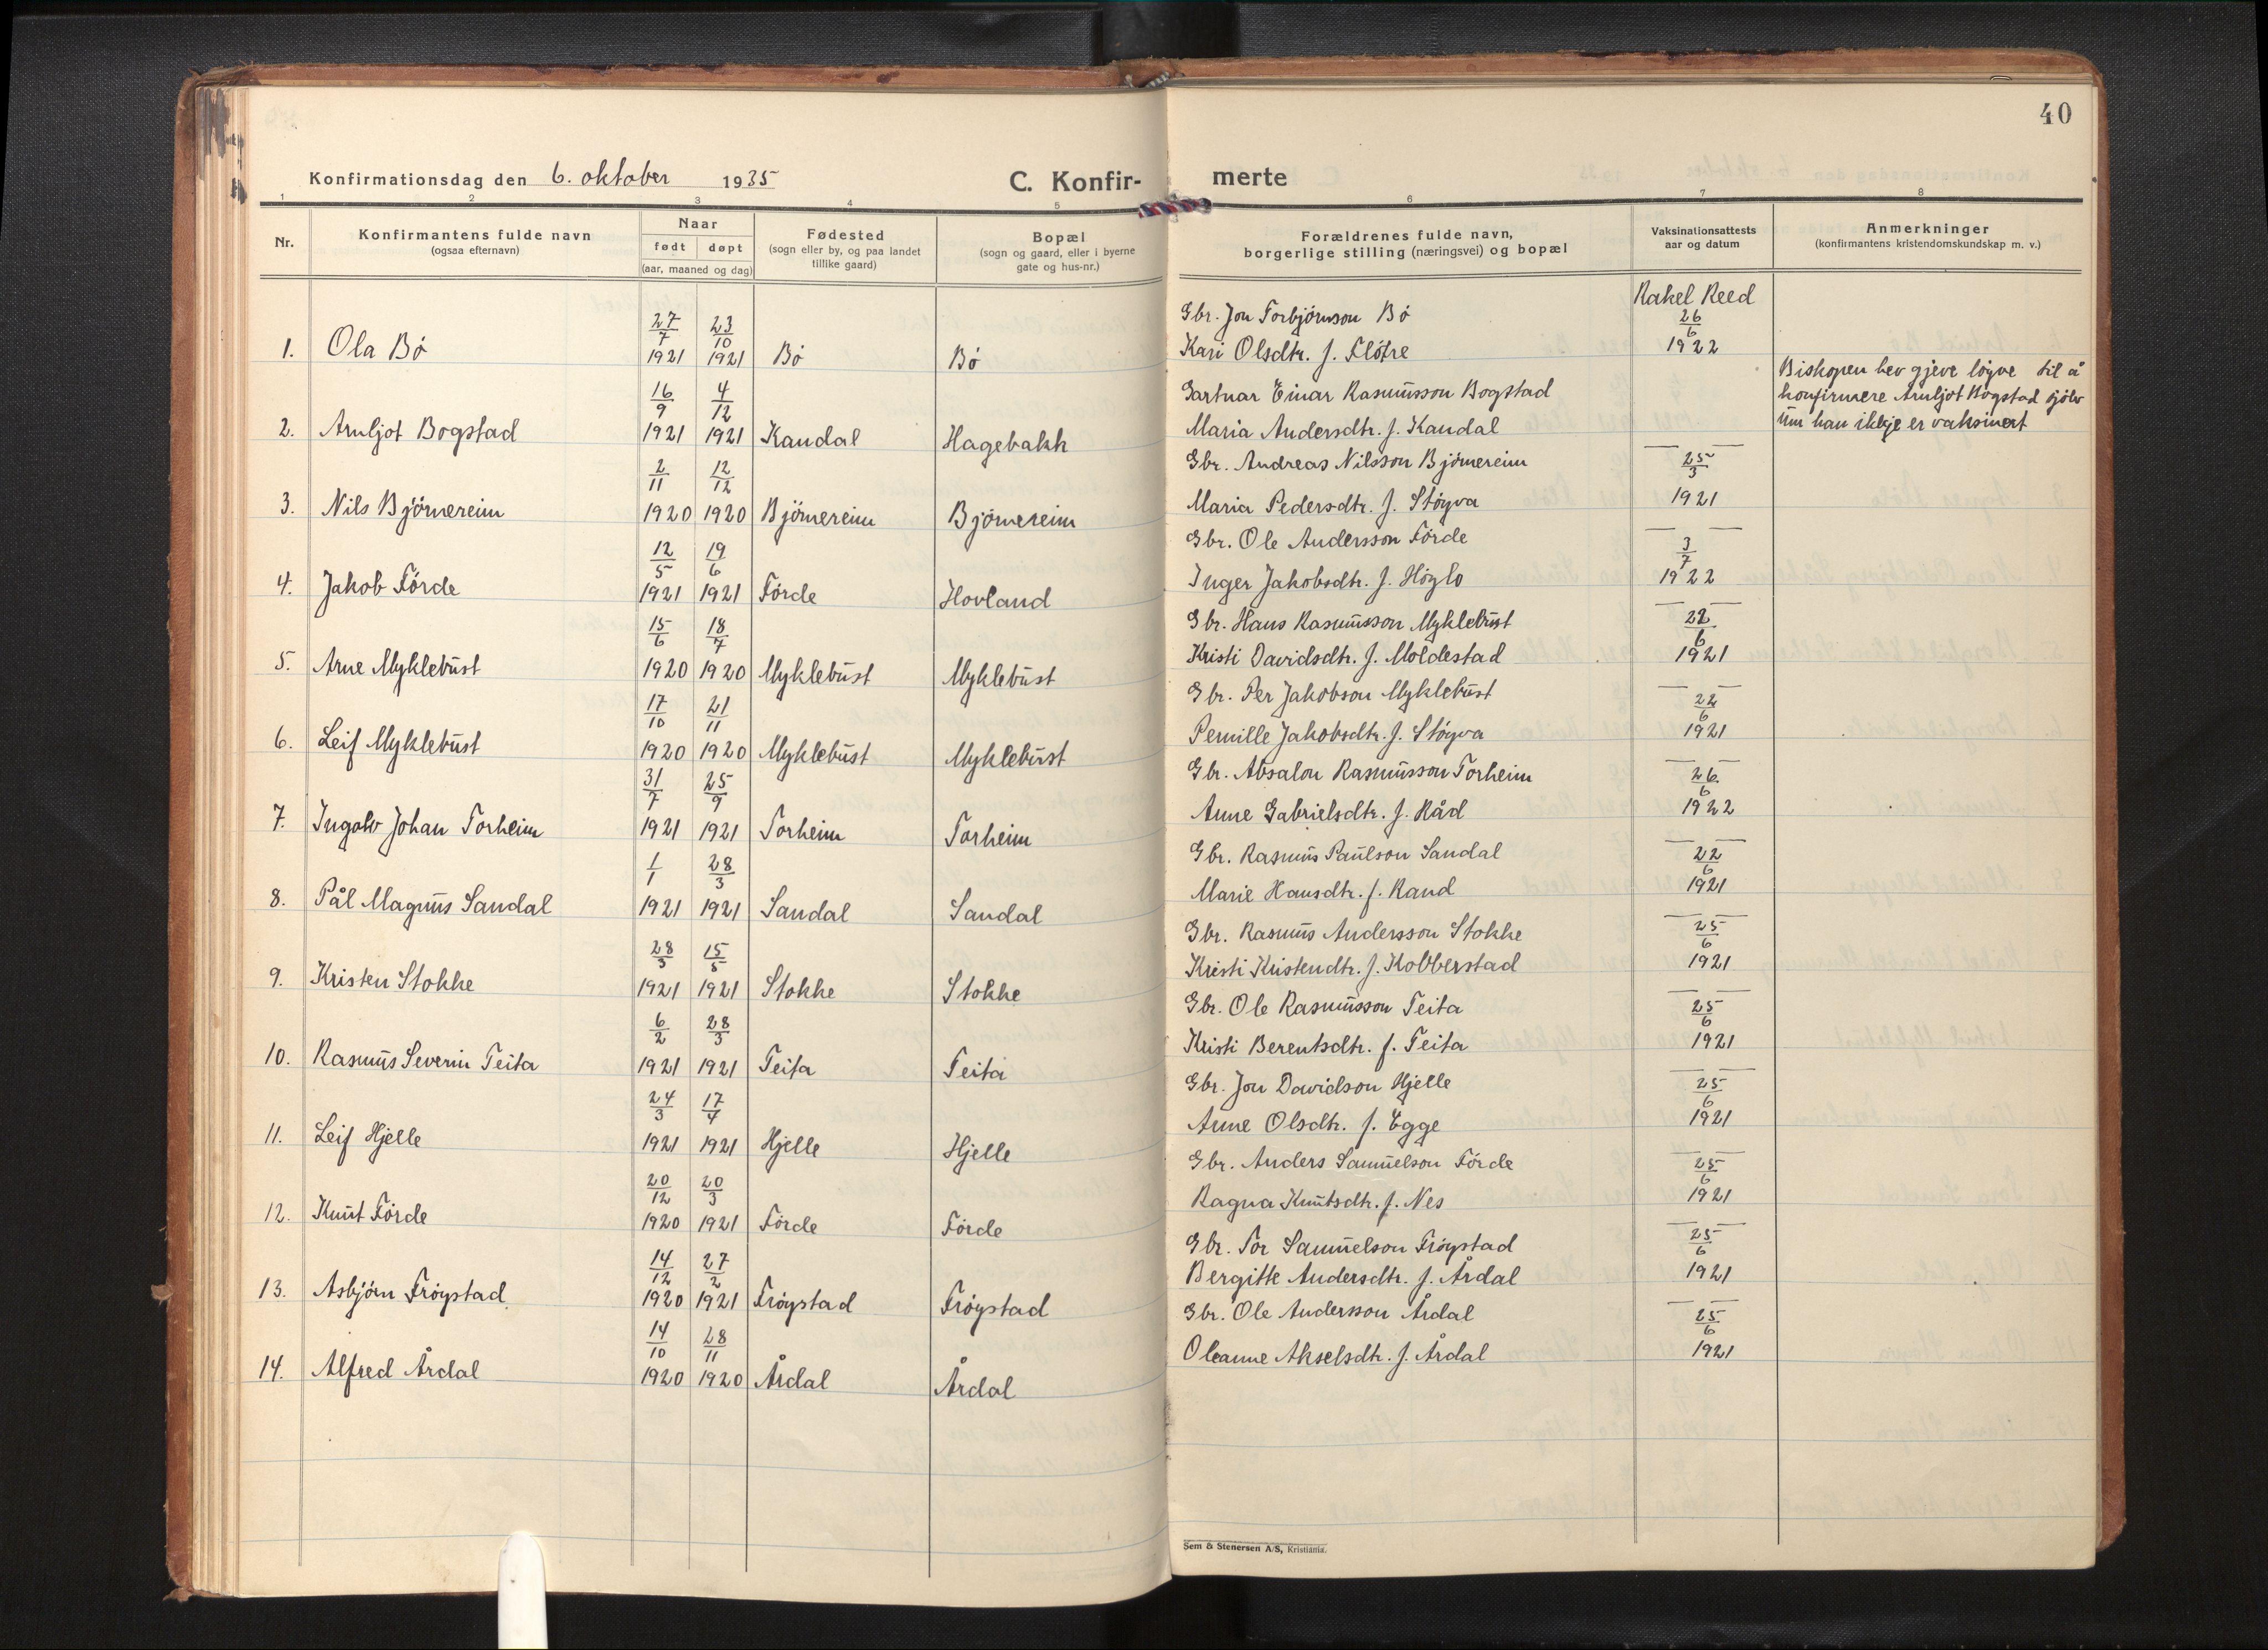 40
Konfirmationsdag den 6. oktober 1935
C. Konfir- merte
1 2 3 4 5 6 7 8
Nr.
Konfirmantens fulde navn
(ogsaa efternavn)
Naar
født døpt
(aar, maaned og dag)
Fødested
(sogn eller by, og paa landet
tillike gaard)
Bopæl
(sogn og gaard, eller i byerne
gate og hus-nr.)
Forældrenes fulde navn,
borgerlige stilling (næringsvei) og bopæl
Vaksinationsattests
aar og datum
Anmerkninger
(konfirmantens kristendomskundskap m. v.)
Rakel Reed
27/7 23/10 Gbr. Jon Torbjörnson Bö 26/6
1. Ola Bö 1921 1921 Bö Bö Kari Olsdtr. f. Flötre 1922
16/9 4/12 Gartnar Einar Rasmusson Bogstad
2. Arnljot Bogstad 1921 1921 Kandal Hagebakk Maria Andersdtr. f. Kandal
Biskopen hev gjeve löyve til å
konfirmere Arnljot Bogstad sjölv
um han ikkje er vaksinert
2/11 12/12 Gbr. Andreas Nilsson Björnereim 25/3
3. Nils Björnereim 1920 1920 Björnereim Björnereim Maria Pedersdtr. f. Stöyva 1921
12/5 19/6 Gbr. Ole Andersson Förde — 3/7 —
4. Jakob Förde 1921 1921 Förde Hovland Inger Jakobsdtr. f. Höglo 1922
15/6 18/7 Gbr. Hans Rasmusson Myklebust — 22/6 —
5. Arne Myklebust 1920 1920 Myklebust Myklebust Kristi Davidsdtr. f. Moldestad 1921
17/10 21/11 Gbr. Per Jakobson Myklebust — 22/6 —
6. Leif Myklebust 1920 1920 Myklebust Myklebust Pernille Jakobsdtr. f. Stöyva 1921
31/7 25/9 Gbr. Absalon Rasmusson Torheim — 26/6 —
7. Ingolv Johan Torheim 1921 1921 Torheim Torheim Anne Gabrielsdtr. f. Råd 1922
1/1 28/3 Gbr. Rasmus Paulson Sandal — 22/6 —
8. Pål Magnus Sandal 1921 1921 Sandal Sandal Marie Hansdtr. f. Rand 1921
28/3 15/5 Gbr. Rasmus Andersson Stokke — 25/6 —
9. Kristen Stokke 1921 1921 Stokke Stokke Kristi Kristendtr. f. Kobberstad 1921
6/2 28/3 Gbr. Ole Rasmusson Teita — 25/6 —
10. Rasmus Severin Teita 1921 1921 Teita Teita Kristi Berentsdtr. f. Teita 1921
24/3 17/4 Gbr. Jon Davidson Hjelle — 25/6 —
11. Leif Hjelle 1921 1921 Hjelle Hjelle Anne Olsdtr. f. Egge 1921
20/12 20/3 Gbr. Anders Samuelson Förde — 25/6 —
12. Knut Förde 1920 1921 Förde Förde Ragna Knutsdtr. f. Nes 1921
14/12 27/2 Gbr. Tor Samuelson Fröystad — 25/6 —
13. Asbjörn Fröystad 1920 1921 Fröystad Fröystad Bergitte Andersdtr. f. Årdal 1921
14/10 28/11 Gbr. Ole Andersson Årdal — 25/6 —
14. Alfred Årdal 1920 1920 Årdal Årdal Oleanne Akselsdtr. f. Årdal 1921
Sem & Stenersen A/S, Kristiania.